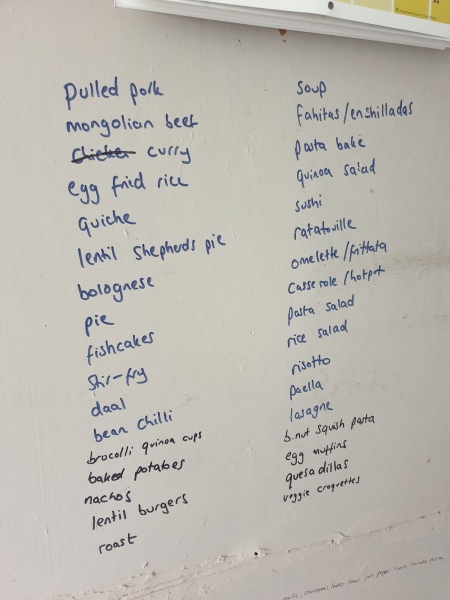 Pulled pork
mongolian beef
chicken curry
egg fried rice
quiche
lentil shepherds pie
bolognese
pie
fishcakes
Stir-fry
daal
bean chilli
brocolli quinoa cups
baked potatoes
nachos
lentil burgers
roast
Soup
fahitas/enshilladas
pasta bake
quinoa salad
sushi
ratatouille
omelette/frittata
casserole/hotpot
pasta salad
rice salad
risotto
paella
lasagne
b.nut squish pasta
egg muffins
quesadillas
veggie croquettes